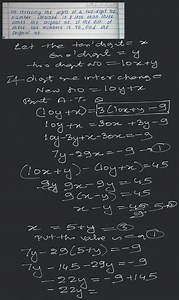 On reversing the digits of a two-digit no.
number obtained is 9 less than three
times the original no. If the diff. of
these two numbers is 45, find the
original no.
Let the ten's digit = x
One's digit = y
two digit NO = 10x+y
If digit are inter change
New NO = 10y+x
A.T.Q
(10y+x)=3(10x+y)-9
10y+x = 30x+3y-9
10y-3y+x-30x=-9
7y-29x=-9 —①
(10x+y)-(10y+x)=45
9x-9y=45
9(x-y)=45
x-y=45 5
9
x=5+y —②
Put the value in eq ①
7y-29(5+y)=-9
7y-145-29y=-9
-22y=-9+145
-22y=